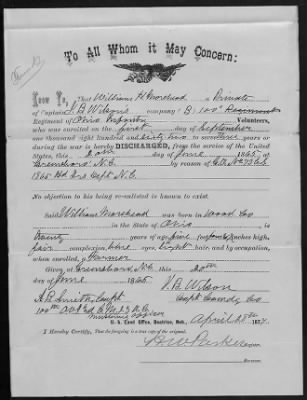 To All Whom it May Concern:
Know Ye, That William H Morehead a Private
of Captain J B Wilson's company B. 100th Regiment
Regiment of Ohio Infantry Volunteers,
who was enrolled on the first day of September
one thousand eight hundred and sixty two to serve three years or
during the war is hereby DISCHARGED, from the service of the United
States, this 20th day of June 1865 at
Greensboro, N.C. by reason of
1865 Hd Qrs Dept N.C.
No objection to his being re-enlisted is known to exist.
Said William Morehead was born in Wood Co
in the State of Ohio, is
Twenty years of age, five feet inches high,
fair complexion, blue eyes, light hair, and by occupation,
when enrolled, a Farmer
Given at Greensboro, N.C. this 20th
day of June 1865
J.B. Wilson
Capt Comdg Co
A.R. Smith Capt
mustering officer
U. S. Land Office, Beatrice, Neb., April 25th 1874
I Hereby Certify, That the foregoing is a true copy of the original.